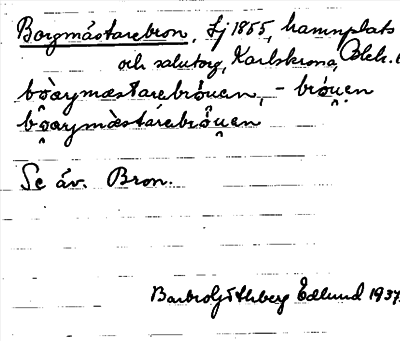 Borgmästarebron, Lj 1855, hamnplats
och salutorg, Karlskrona, Blek.
bòarymæstarebrów̯en, - brów̯en
bòarymæ̀stárebrów̯en
Se äv. Bron.
Barbro Ljóthberg Edlund 1937